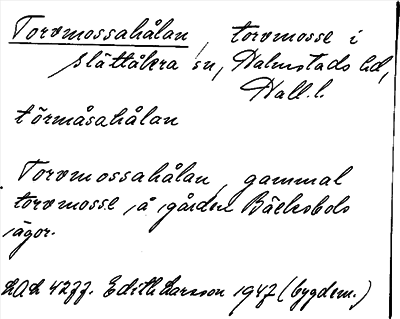 Torvmossahålan, torvmosse i
Slättåkra sn, Halmstads hd,
Hall. l.
törmåsahålan
Torvmossahålan, gammal
torvmosse å gården Bäcksbols
ägor.
Edith Larsson 1947 (bygdem.)